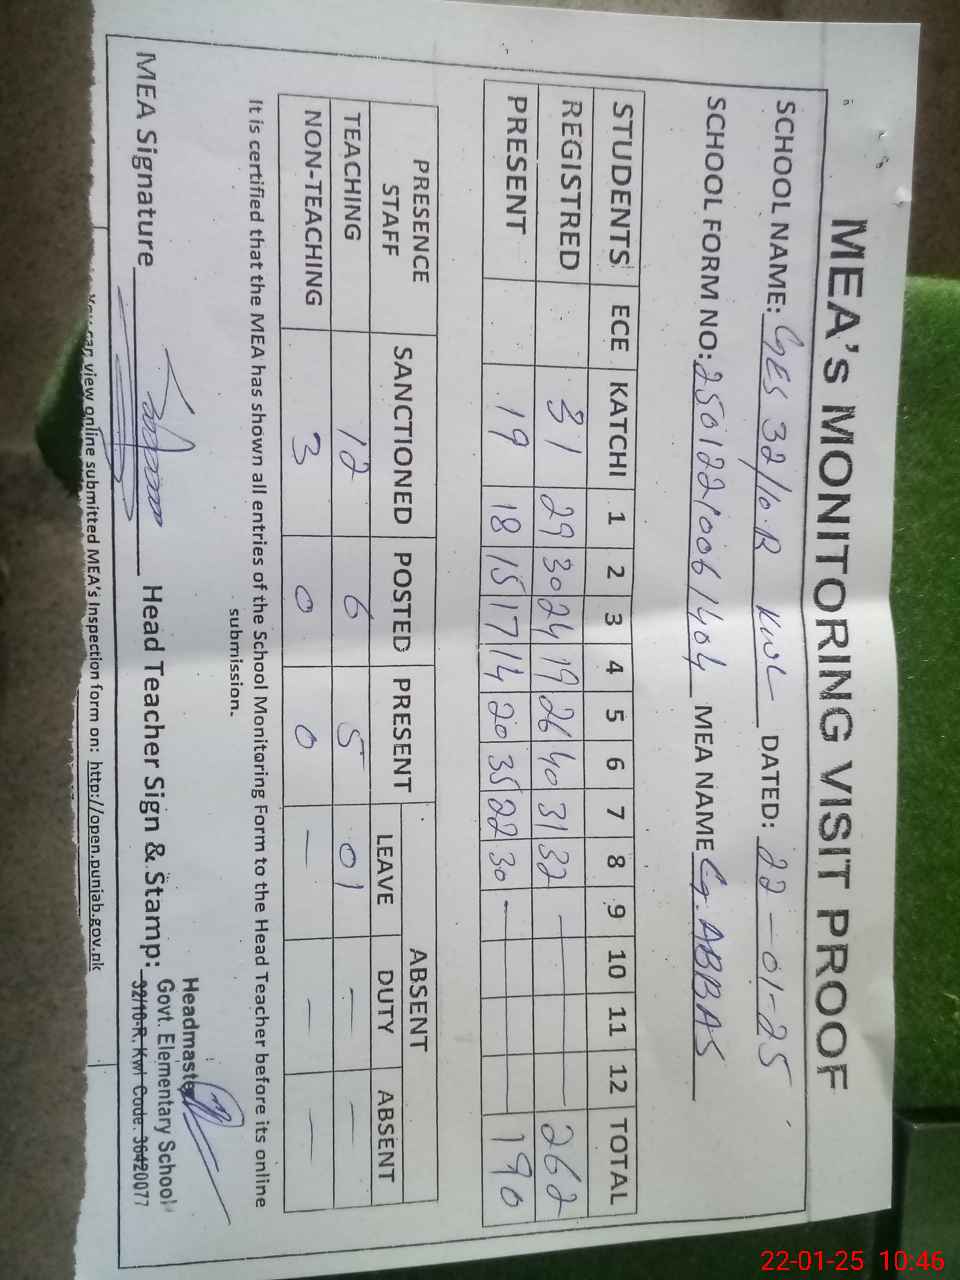 MEA's MONITORING VISIT PROOF
SCHOOL NAME: GES 32/10.R KWL DATED: 22-01-25
SCHOOL FORM NO: 25012210061404 MEA NAME Eg. ABBAS
STUDENTS ECE KATCHI 1 2 3 4 5 6 7 8 9 10 11 12 TOTAL
REGISTRED 31 29 30 24 19 26 40 31 32 — 262
PRESENT 19 18 15 17 14 20 35 22 30 — 190
PRESENCE STAFF SANCTIONED POSTED PRESENT ABSENT
LEAVE DUTY ABSENT
TEACHING 12 6 5 01 — —
NON-TEACHING 3 0 0 — — —
It is certified that the MEA has shown all entries of the School Monitoring Form to the Head Teacher before its online
submission.
MEA Signature Head Teacher Sign & Stamp:
Headmaster
Govt. Elementary School
32/10-R. Kwl Code. 36420077
You can view online submitted MEA's Inspection form on: http://open.punjab.gov.pk
22-01-25 10:46